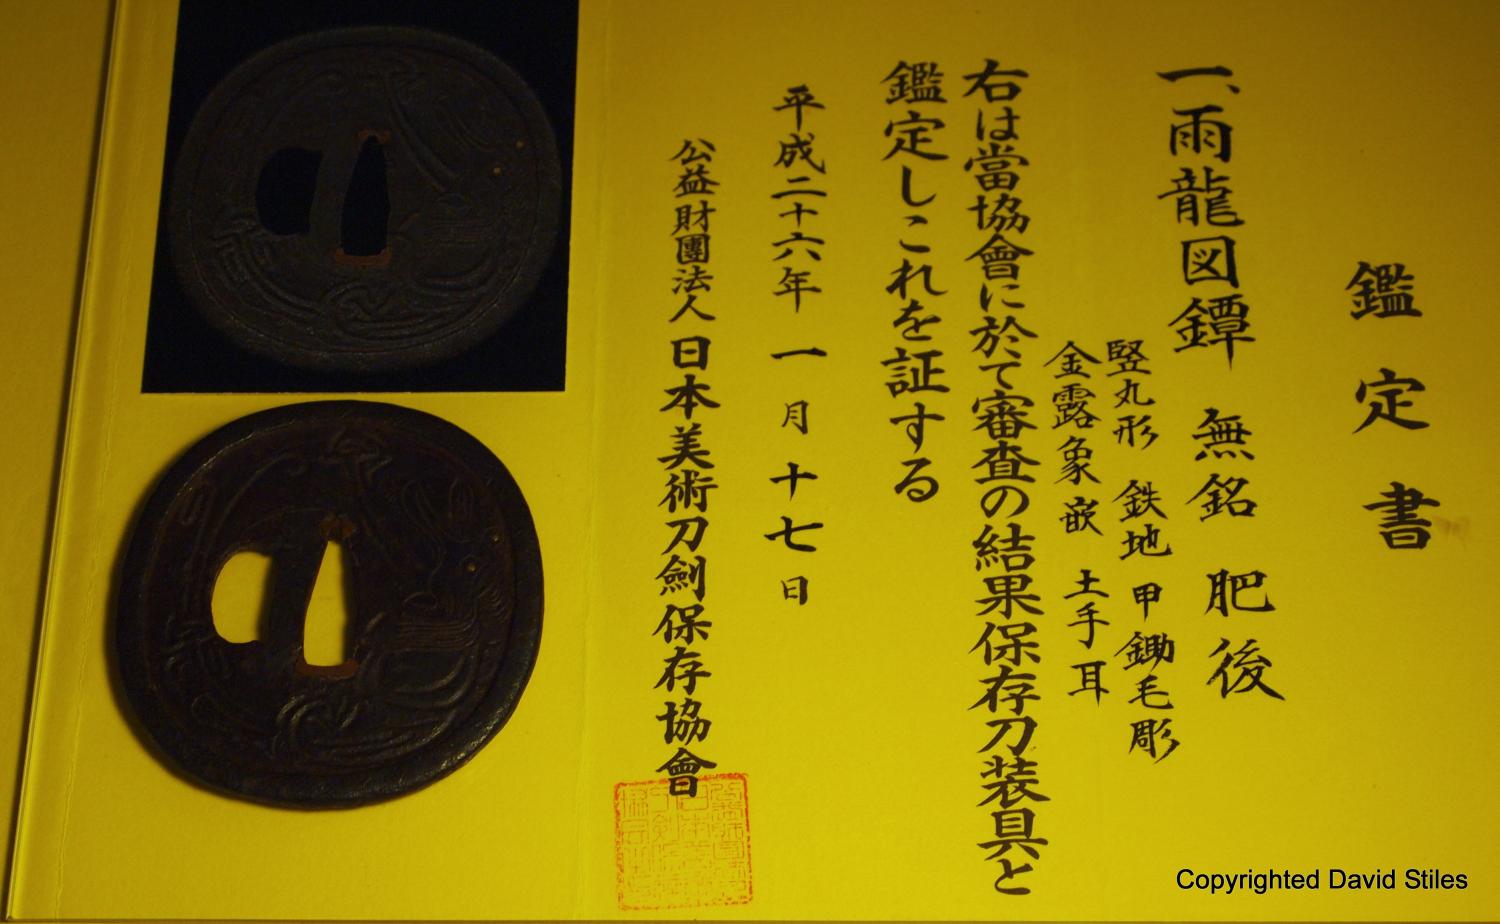 鑑定書
一、雨龍図鐔 無銘 肥後
竪丸形 鉄地 甲鋤毛彫
金露象嵌 土手耳
右は當協會に於て審査の結果保存刀装具と
鑑定しこれを証する
平成二十六年一月十七日
公益財團法人日本美術刀劍保存協會
Copyrighted David Stiles